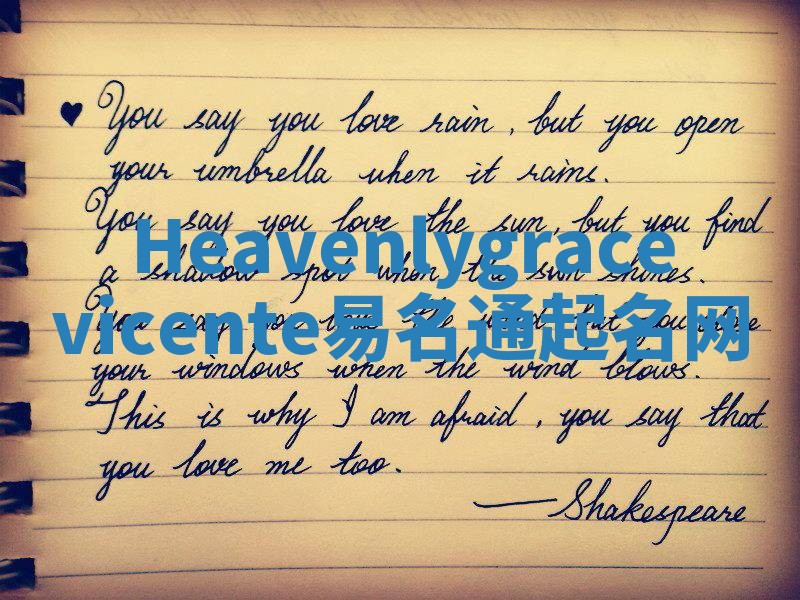 ♥ You say you love rain, but you open
your umbrella when it rains.
You say you love the sun, but you find
a shadow spot when the sun shines.
Heavenlygrace
You say you love the wind, but you close
vicente易名通起名网
your windows when the wind blows.
This is why I am afraid, you say that
you love me too.
—Shakespeare